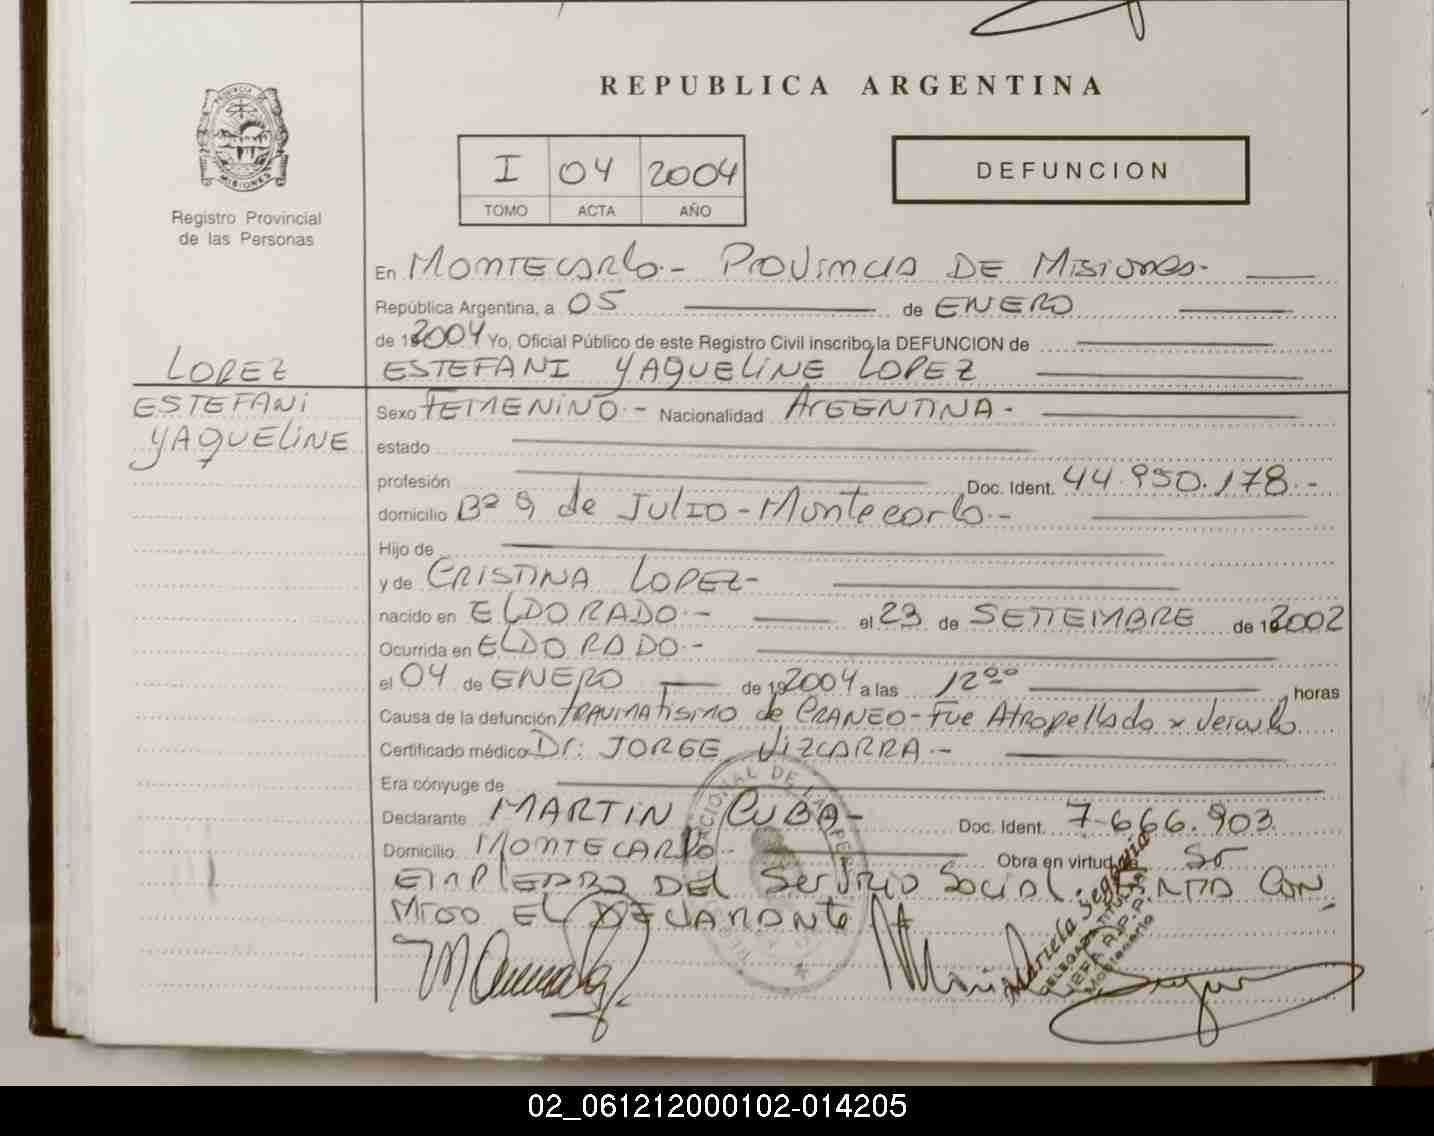 REPUBLICA ARGENTINA
PROVINCIA DE
MISIONES
Registro Provincial
de las Personas
I 04 2004
TOMO ACTA AÑO
DEFUNCION
En MONTECARLO.- PROVINCIA DE MISIONES.-
República Argentina, a 05 de ENERO
de 192004 Yo, Oficial Público de este Registro Civil inscribo la DEFUNCION de
LOPEZ
ESTEFANI YAQUELINE
ESTEFANI YAQUELINE LOPEZ
Sexo FEMENINO.- Nacionalidad ARGENTINA-
estado
profesión Doc. Ident. 44.950.178.-
domicilio Bº 9 de JULIO - Montecarlo.-
Hijo de
y de CRISTINA LOPEZ-
nacido en ELDORADO.- el 23 de SETTIEMBRE de 192002
Ocurrida en ELDORADO.-
el 04 de ENERO de 192004 a las 12ºº horas
Causa de la defunción TRAUMATISMO de CRANEO - Fue Atropellado x Veiculo
Certificado médico Dr: JORGE VIZCARRA.-
Era cónyuge de
Declarante MARTIN CUBA- Doc. Ident. 7.666.903
Domicilio MONTECARLO.- Obra en virtud
EMPLEADO DEL Servicio Social. CON
MIGO EL DECLARANTE
Mariela Segovia
DELEGADA TITULAR
JEFA R.P.P.
Montecarlo
02_061212000102-014205